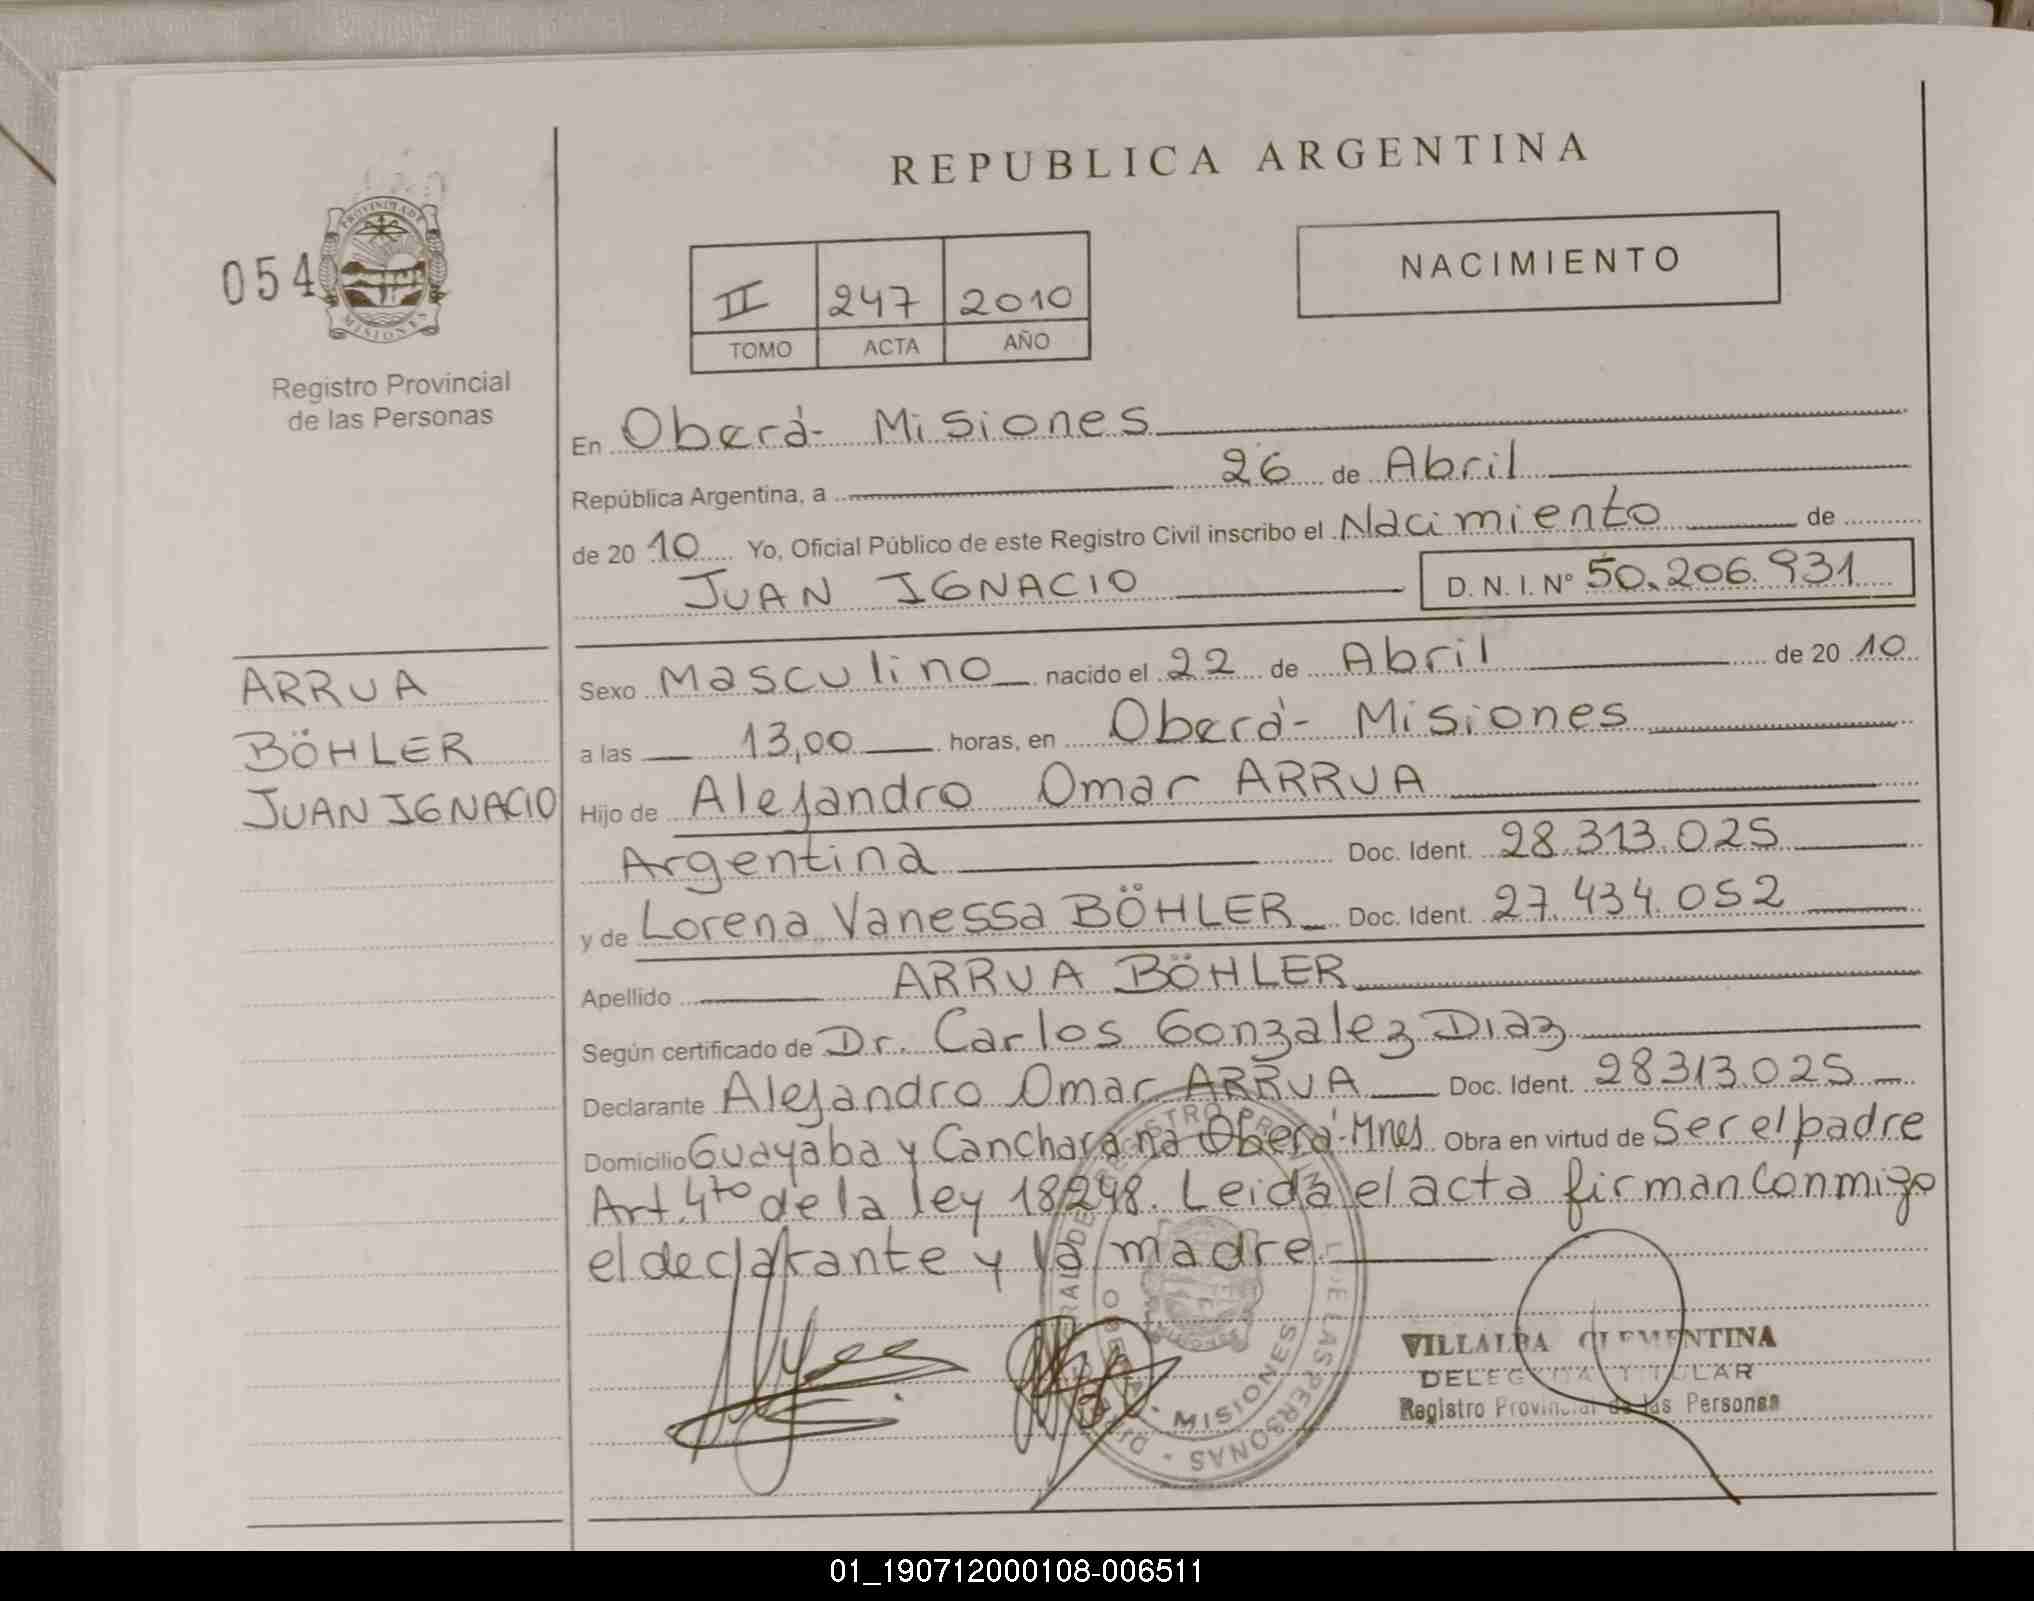 REPUBLICA ARGENTINA
NACIMIENTO
054
PROVINCIA DE
MISIONES
Registro Provincial
de las Personas
II 247 2010
TOMO ACTA AÑO
En Oberá- Misiones
República Argentina, a 26 de Abril
de 20 10 Yo, Oficial Público de este Registro Civil inscribo el Nacimiento de
JUAN IGNACIO D. N. I. Nº 50.206.931
ARRUA
BÖHLER
JUAN IGNACIO
Sexo Masculino nacido el 22 de Abril de 20 10
a las 13,00 horas, en Oberá- Misiones
Hijo de Alejandro Omar ARRUA
Argentina Doc. Ident. 28.313.025
y de Lorena Vanessa BÖHLER Doc. Ident. 27.434.052
Apellido ARRUA BÖHLER
Según certificado de Dr. Carlos Gonzalez Diaz
Declarante Alejandro Omar ARRUA Doc. Ident. 28313.025
Domicilio Guayaba y Cancharana Oberá-Mnes Obra en virtud de Ser el padre
Art. 4to de la ley 18248. Leida el acta firman conmigo
el declarante y la madre
MISIONES
VILLALBA CLEMENTINA
DELEGADA TITULAR
Registro Provincial de las Personas
01_190712000108-006511